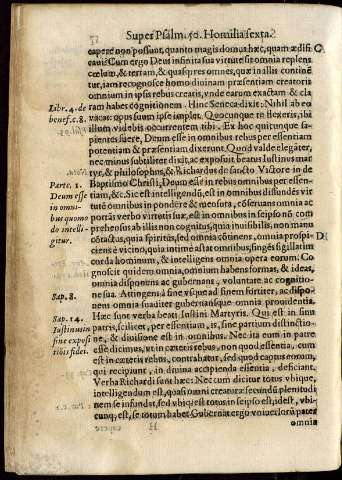 Super Psalm. 50. Homilia sexta.
capere non possunt, quanto magis domus hæc, quam ædifi-
caui? Cum ergo Deus infinita sua virtute sit omnia replens
cælum, & terram, & quasque res omnes, quæ in illis continē
tur, iam recognosce homo diuinam præsentiam creatoris
omnium in ipsis rebus creatis, vnde earum exactam & cla
ram habes cognitionem. Hinc Seneca dixit: Nihil ab eo
vacat: opus suum ipse implet. Quocunque te flexeris, ibi
illum videbis occurrentem tibi. Ex hoc quicunque sa-
pientes fuere, Deum esse in omnibus rebus per essentiam
potentiam & præsentiam dixerunt. Quod valde eleganter,
nec minus subtiliter dixit, ac exposuit beatus Iustinus mar-
tyr, & philosophus, & Richardus de sancto Victore in de
Baptismo Christi, Deum esse in rebus omnibus per essen-
tiam, &c. Sic est intelligendū, est in omnibus diffundēs vir
tutē omnibus in pondere & mensura, cōseruans omnia ac
portās verbo virtutis suæ, est in omnibus in seipso nō com
prehensus ab illis non cognitus, quia inuisibilis, non manu
cōtactus, quia spiritus, sed omnia cōtinens, omnia prospi-
ciens è vicino, quia intimè astat omnibus, fingēs sigillatim
corda hominum, & intelligens omnia opera eorum. Co
gnoscit quidem omnia, omnium habens formas, & ideas,
omnia disponens ac gubernans, voluntate ac cognitio-
ne sua. Attingens à fine vsque ad finem fortiter, ac dispo-
nens omnia suauiter gubernansque omnia prouidentia.
Hæc sunt verba beati Iustini Martyris. Qui est in sinu
patris, scilicet, per essentiam, is, sine partium distinctio-
ne, & diuisione est in omnibus. Nec ita eum in patre
esse dicimus, vt in cæteris rebus, non quod essentia, cum
est in cæteris rebus, contrahatur, sed quod captus eorum,
qui recipiunt, in diuina accipienda essentia, deficiant.
Verba Richardi sunt hæc: Nec cum dicitur totus vbique,
intelligendum est, quasi omni creaturæ secundū plenitudi
nem se infundat, sed vbique est totus in seipso est, idest, vbi-
cunque est, se totum habet. Gubernat ergo vniuersorū pater
H
omnia
C
D
Libr. 4. de
benef. c. 8.
Parte. 1.
Deum esse
in omni-
bus quomo
do intelli-
gitur.
Sap. 8.
Sap. 14.
Iustinus in
fine exposi
tionis fidei.